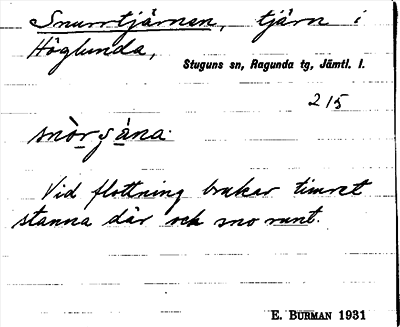 Snurrtjärnen, tjärn i
Höglunda,
Stuguns sn, Ragunda tg, Jämtl. l.
215
Vid flottning brukar timret
stanna där och sno runt.
E. BURMAN 1931